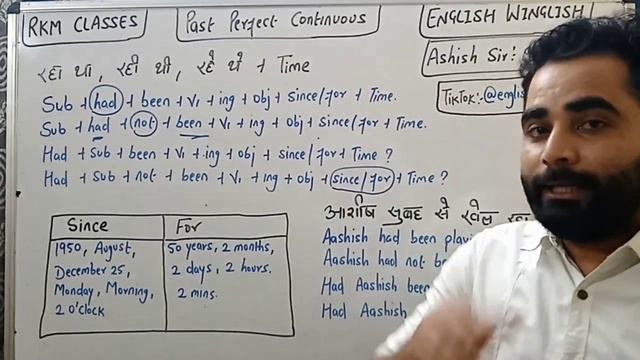 RKM CLASSES
Past Perfect Continuous
ENGLISH WINGLISH
Ashish Sir:
TikTok:-@engli
रहा था, रही थी, रहे थे + Time
Sub + had + been + V₁ + ing + Obj + Since/for + Time.
Sub + had + not + been + V₁ + ing + Obj + Since/for + Time.
Had + Sub + been + V₁ + ing + obj + Since/for + Time ?
Had + Sub + not + been + V₁ + ing + obj + since/for + Time ?
Since
For
1950, August,
50 years, 2 months,
December 25,
2 days, 2 hours.
Monday, Morning,
2 mins.
2 O'clock
आशीष सुबह से खेल रहा
Aashish had been playi
Aashish had not be
Had Aashish been
Had Aashish